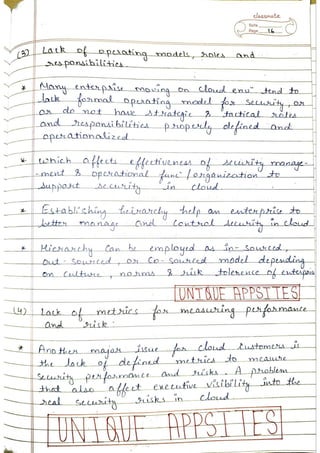 classmate
Date
Page 16
(3) Lack of operating models, roles and
responsibilities.
* Many enterprise moving on cloud envi tend to
lack formal operating model for security, or
or do not have strategic & tactical roles
and responsibilities properly defined and
operationalized
* Which affects effectiveness of security manage-
-ment & operational func / organization to
support security in cloud.
* Establishing heirarchy help an enterprise to
better manage and control security in cloud
* Hierarchy can be employed as in-sourced,
out-sourced, or co-sourced model depending
on culture, norms & risk tolerence of enterprise
UNIQUE APPSITES
(4) Lack of metrics for measuring performance
and risk.
* Another major issue for cloud customers is
the lack of defined metrics to measure
security performance and risks. A problem
that also affect executive visibility into the
real security risks in cloud.
UNIQUE APPSITES